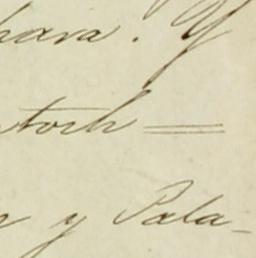 hara. Y
tosh =
y Pala-